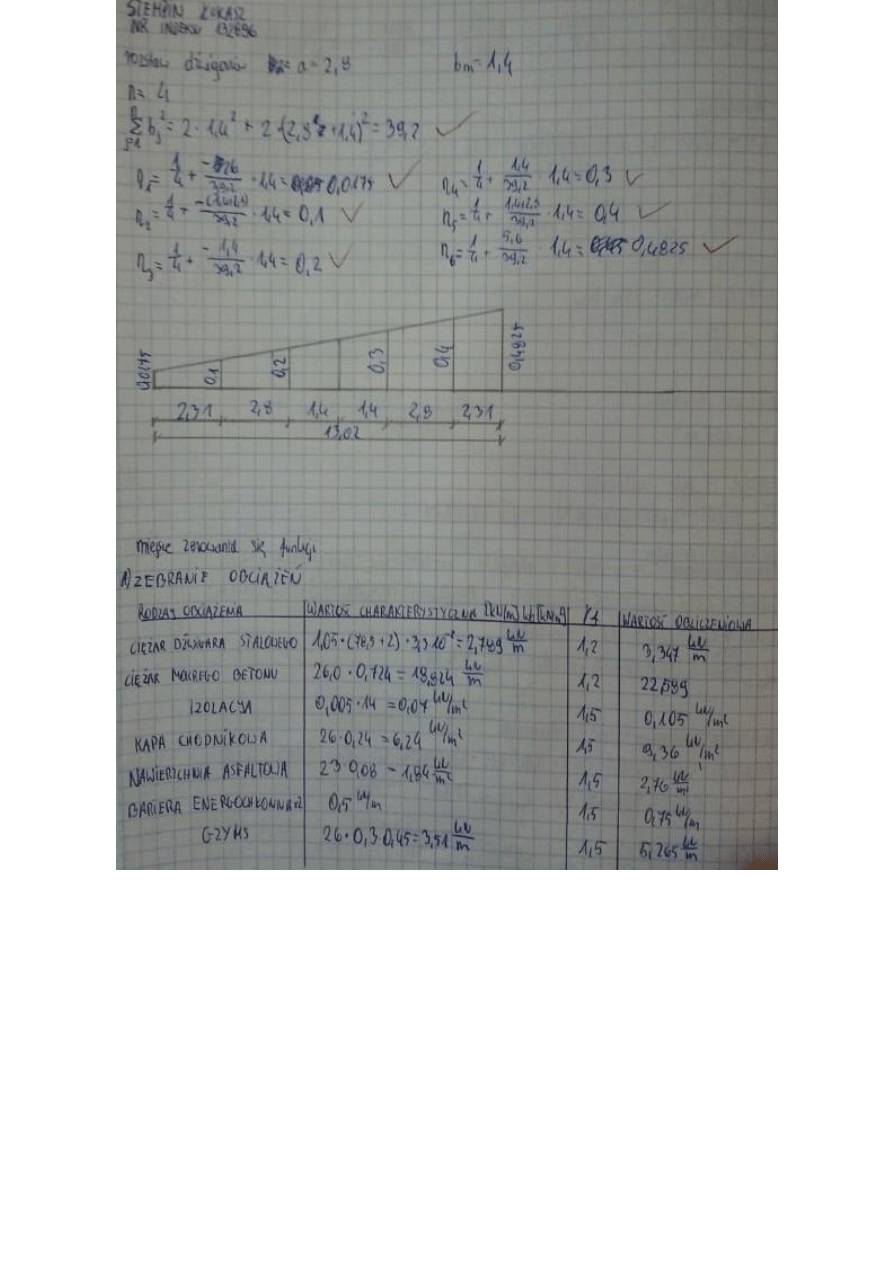 STEMPIN ŁUKASZ
NR INDEKSU 132696
rozstaw dźwigarów = a = 2,8 bm = 1,4
n = 4
Σ bj² = 2 · 1,4² + 2 · (2,8 + 1,4)² = 39,2
η1 = 1/4 + /39,2 · 1,4 = 0,0175 η4 = 1/4 + 1,4/39,2 · 1,4 = 0,3
η2 = 1/4 + -(1,4+2,8)/39,2 · 1,4 = 0,1 η5 = 1/4 + 1,4+2,8/39,2 · 1,4 = 0,4
η3 = 1/4 + -1,4/39,2 · 1,4 = 0,2 η6 = 1/4 + /39,2 · 1,4 = 0,4825
0,0175 0,1 0,2 0,3 0,4 0,4825
2,31 2,8 1,4 1,4 2,8 2,31
13,02
miejsce zerowania się funkcji
1) ZEBRANIE OBCIĄŻEŃ
RODZAJ OBCIĄŻENIA WARTOŚĆ CHARAKTERYSTYCZNA [kN/m] lub [kN/m²] γf WARTOŚĆ OBLICZENIOWA
CIĘŻAR DŹWIGARA STALOWEGO 1,05 · (78,5 + 2) · 3,3 · 10⁻² = 2,789 kN/m 1,2 3,347 kN/m
CIĘŻAR MOKREGO BETONU 26,0 · 0,724 = 18,824 kN/m 1,2 22,589
IZOLACJA 0,005 · 14 = 0,07 kN/m² 1,5 0,105 kN/m²
KAPA CHODNIKOWA 26 · 0,24 = 6,24 kN/m² 1,5 9,36 kN/m²
NAWIERZCHNIA ASFALTOWA 23 · 0,08 = 1,84 kN/m² 1,5 2,76 kN/m²
BARIERA ENERGOCHŁONNA 0,5 kN/m 1,5 0,75 kN/m
GZYMS 26 · 0,3 · 0,45 = 3,51 kN/m 1,5 5,265 kN/m